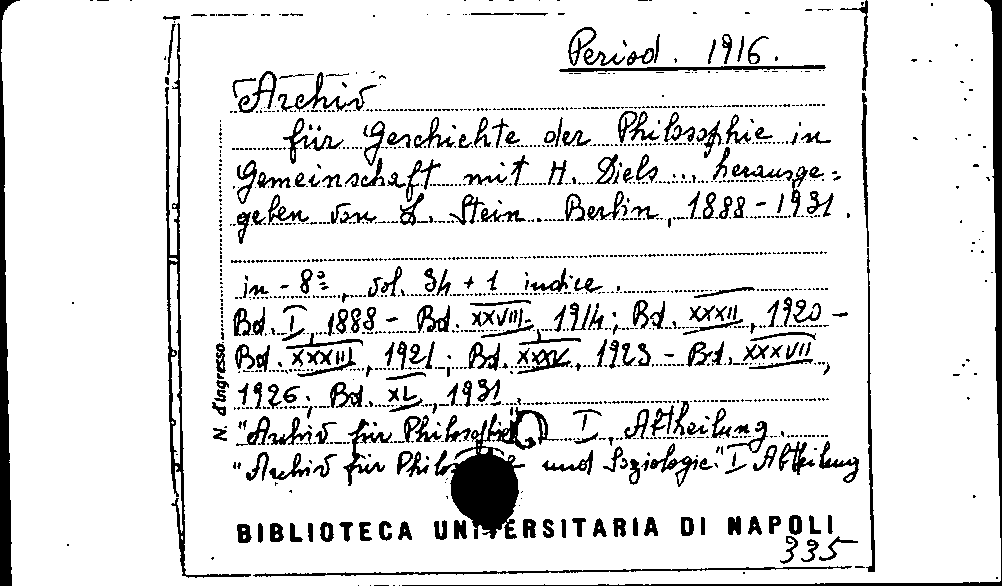 Period. 1916.
Archiv
für Geschichte der Philosophie in
Gemeinschaft mit H. Diels ... herausge=
geben von L. Stein. Berlin, 1888-1931.
in-8º, vol. 34 + 1 indice.
Bd. I, 1888 - Bd. XXVIII, 1914; Bd. XXXII, 1920 -
Bd. XXXIII, 1921; Bd. XXXV, 1923 - Bd. XXXVII,
1926; Bd. XL, 1931.
"Archiv für Philosophie" I. Abtheilung.
"Archiv für und Soziologie." I Abtheilung
N. d'Ingresso
BIBLIOTECA UNIVERSITARIA DI NAPOLI
335